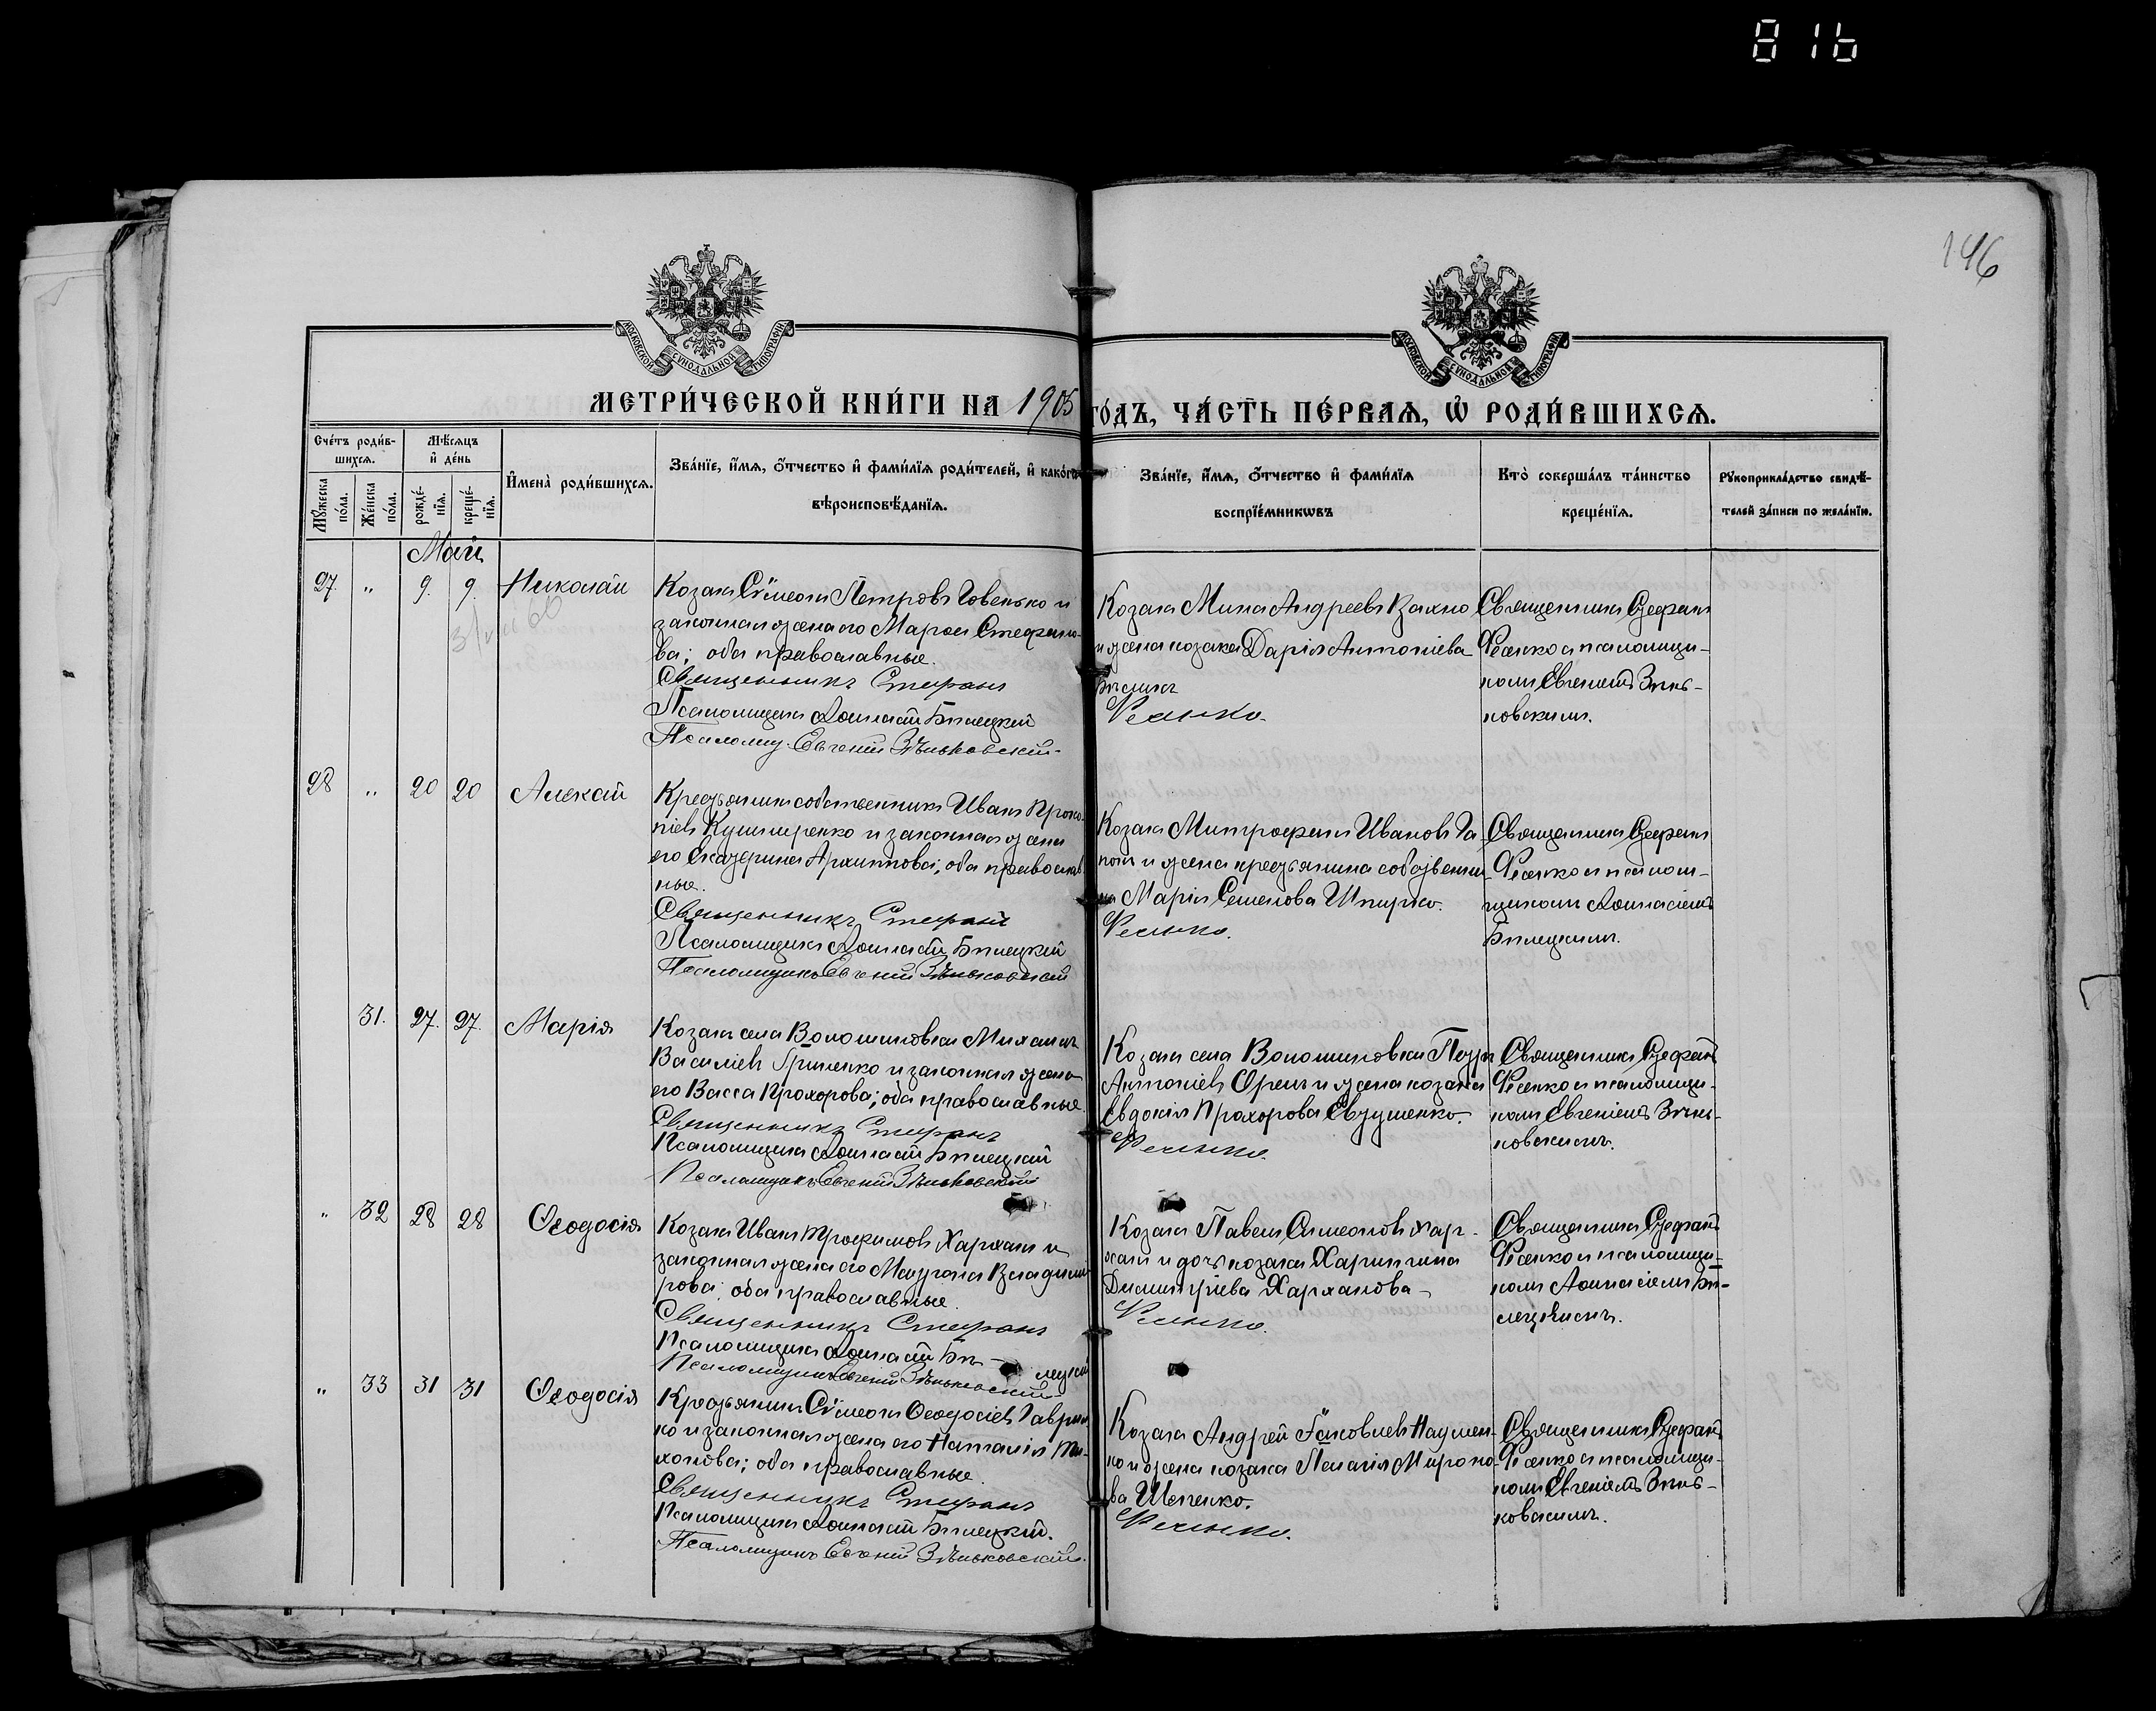 816
146
МОСКОВСКОЙ СѴНОДАЛЬНОЙ ТИПОГРАФІИ
МОСКОВСКОЙ СѴНОДАЛЬНОЙ ТИПОГРАФІИ
МЕТРИ́ЧЕСКОЙ КНИ́ГИ НА 1905 ГО́ДЪ, ЧА́СТЬ ПЕ́РВАЯ, Ѡ҆ РОДИ́ВШИХСЯ.
Сче́тъ роди́в-
шихся.
Мѣ́сяцъ
и҆ де́нь
И҆мена̀ роди́вшихся.
Зва́нїе, и҆́мя, ѻ҆́тчество и҆ фами́лїя роди́телей, и҆ како́гѡ
вѣроисповѣ́данїя.
Зва́нїе, и҆́мя, ѻ҆́тчество и҆ фами́лїя
воспрїе́мникѡвъ
Кто̀ соверша́лъ та́инство
креще́нїя.
Рꙋкоприкла́дство свидѣ́-
телей за́писи по жела́нїю.
Мꙋ́жеска
по́ла.
Же́нска
по́ла.
рожде́-
нїя.
креще́-
нїя.
Май
27. " 9. 9. Николай
Козакъ Сѵмеонъ Петровъ Говенько и
законная жена его Марѳа Стефано-
ва; оба православные.
Священникъ Стефанъ
Псаломщикъ Аѳанасій Бѣлецкій
Псаломщ. Евгеній Зѣньковскій.
Козакъ Мина Андреевъ Вахно
и жена козака Дарія Антоніева
Фесенко.
Священникъ Стефанъ
Фесенко и псаломщи-
комъ Евгеніемъ Зѣнь-
ковскимъ.
28 " 20 20 Алексій
Крестьянинъ собственникъ Иванъ Проко-
піевъ Кушниренко и законная жена
его Екатерина Архиппова; оба православ-
ные.
Священникъ Стефанъ
Псаломщикъ Аѳанасій Бѣлецкій
Псаломщикъ Евгеній Зѣньковскій
Козакъ Митрофанъ Ивановъ Га-
и жена крестьянина собственни-
ка Марія Семенова Шпирко.
Фесенко.
Священникъ Стефанъ
Фесенко и псалом-
щикомъ Аѳанасіемъ
Бѣлецкимъ.
31. 27. 27. Марія
Козакъ села Волошиновки Михаилъ
Василіевъ Гриненко и законная жена
его Васса Прохорова; оба православные.
Священникъ Стефанъ
Псаломщикъ Аѳанасій Бѣлецкій
Псаломщикъ Евгеній Зѣньковскій
Козакъ села Волошиновки Петръ
Антоніевъ Орелъ и жена козака
Евдокія Прохорова Евтушенко.
Фесенко.
Священникъ Стефанъ
Фесенко и псаломщи-
комъ Евгеніемъ Зѣнь-
ковскимъ.
" 32 28 28 Ѳеодосія
Козакъ Иванъ Трофимовъ Харханъ и
законная жена его Матрона Владими-
рова; оба православные.
Священникъ Стефанъ
Псаломщикъ Аѳанасій Бѣ-
лецкій
Псаломщикъ Евгеній Зѣньковскій
Козакъ Павелъ Симеоновъ Хар-
ханъ и дочь козака Харитина
Димитріева Харханова
Фесенко.
Священникъ Стефанъ
Фесенко и псаломщи-
комъ Аѳанасіемъ Бѣ-
лецкимъ.
" 33 31 31 Ѳеодосія
Крестьянинъ Сѵмеонъ Ѳеодосіевъ Гаврил-
ко и законная жена его Наталія Ти-
хонова; оба православные.
Священникъ Стефанъ
Псаломщикъ Аѳанасій Бѣлецкій.
Псаломщикъ Евгеній Зѣньковскій.
Козакъ Андрей Іаковлевъ Наумен-
ко и жена козака Пелагія Мироно-
ва Шепенко.
Фесенко.
Священникъ Стефанъ
Фесенко и псаломщи-
комъ Евгеніемъ Зѣнь-
ковскимъ.